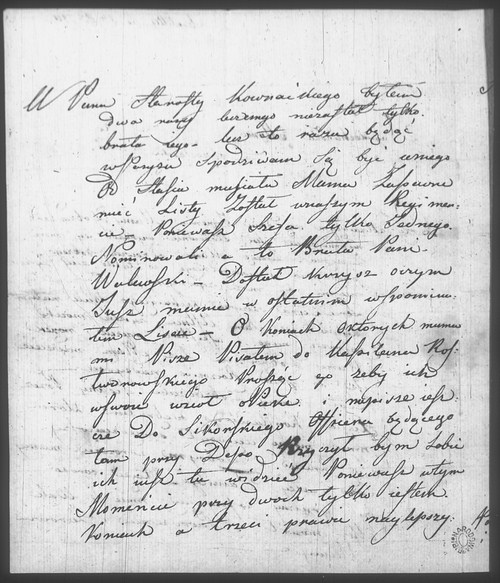 U Pana Starosty Kownaiskiego byłem
dwa razy iednego niezastał tylko
brata iego - lec to razu będąć
wParyżu Spodziwam Się być uniego
O Stasiu musiała Mama Zapewne
mieć Listy Został wnaszym Regimen=
cie - Poniewasz Szefa tylko Jednego
Nominowali a to Brata Pani
Walewski - Dostał Krzysz oczym
Jusz mamie w ostatnim wspomnia=
łem Liście - O Koniach Októrych mama
mi Pisze Pisałem do Kapitana Ros=
tworowskiego Proszęć go zeby ich
wswoię wzioł Opiekę i napisze iesz=
cze Do Sikorskiego Officera będącego
tam przy Depo Życzył bym Sobie
ich iusz tu widzieć Poniewasz wtym
Momencie przy dwoch tylko iestem
Koniach a trzeci prawie naylepszy